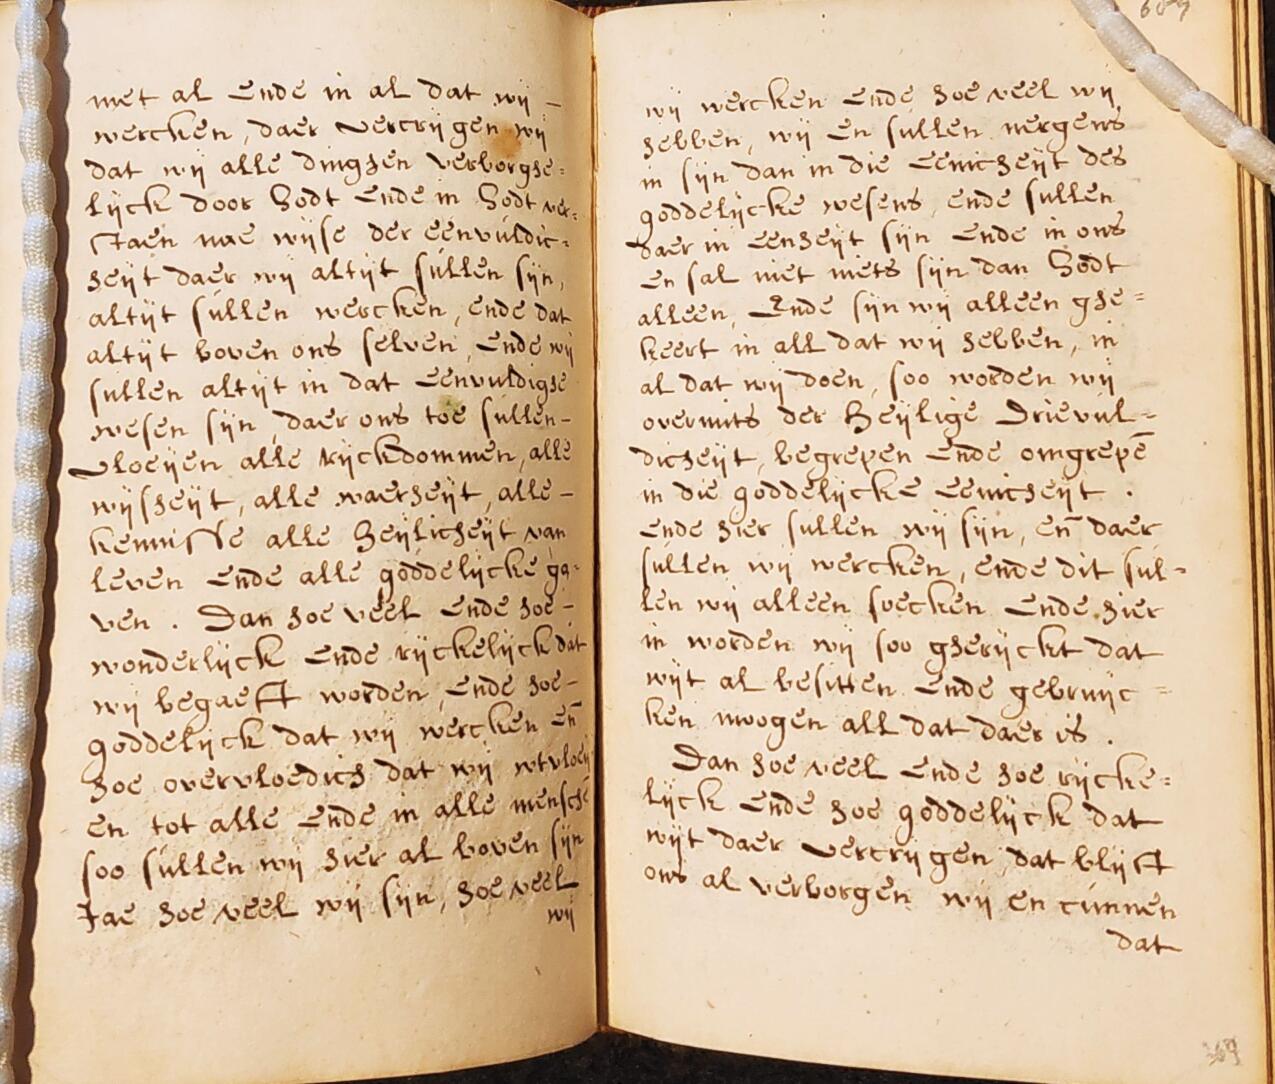 met al ende in al dat wij –
wercken, daer vercrijgen wij
dat wij alle dinghen verborghe=
lijck door Godt ende in Godt ver=
staen nae wijse der eenvúldic=
heijt daer wij altijt súllen sijn,
altijt súllen wercken, ende dat
altijt boven ons selven, ende wij
sullen altijt in dat eenvuldighe
wesen sijn, daer ons toe súllen–
vloeijen alle rijckdommen, alle
wijsheijt, alle waerheijt, alle–
kennisse alle heijlicheijt van
leven ende alle goddelijcke ga=
ven . Dan hoe veel ende hoe–
wonderlijck ende rijckelijck dat
wij begaeft worden, ende hoe–
goddelijck dat wij wercken en̄
hoe overvloedich dat wij wtvloeij
en tot alle ende in alle mensch̄e
soo súllen wij hier al boven sijn
Jae hoe veel wij sijn, hoe veel
wij
wij wercken ende hoe veel wij
hebben, wij en sullen nergens
in sijn dan in die eenicheijt des
goddelijcke wesens, ende sullen
daer in eenheijt sijn ende in ons
en sal niet niets sijn dan Godt
alleen, Ende sijn wij alleen ghe=
keert in all dat wij hebben, in
al dat wij doen, soo worden wij
overmits der heijlige Drievúl=
dicheijt, begrepen ende omgrepē
in die goddelijcke eenicheijt .
ende hier sullen wij sijn, en̄ daer
sullen wij wercken, ende dit sul=
len wij alleen soecken ende hier
in worden wij soo gherijckt dat
wijt al besitten ende gebruijc=
ken moogen all dat daer is .
Dan hoe veel ende hoe rijcke=
lijck ende hoe goddelijck dat
wijt daer vercrijgen, dat blijft
ons al verborgen wij en cúnnen
dat
369